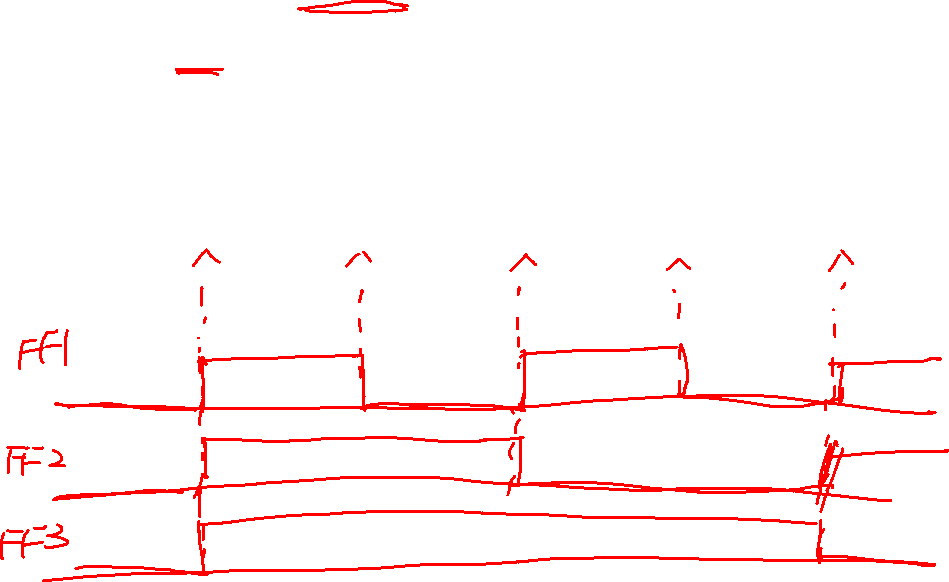 FF1
FF2
FF3